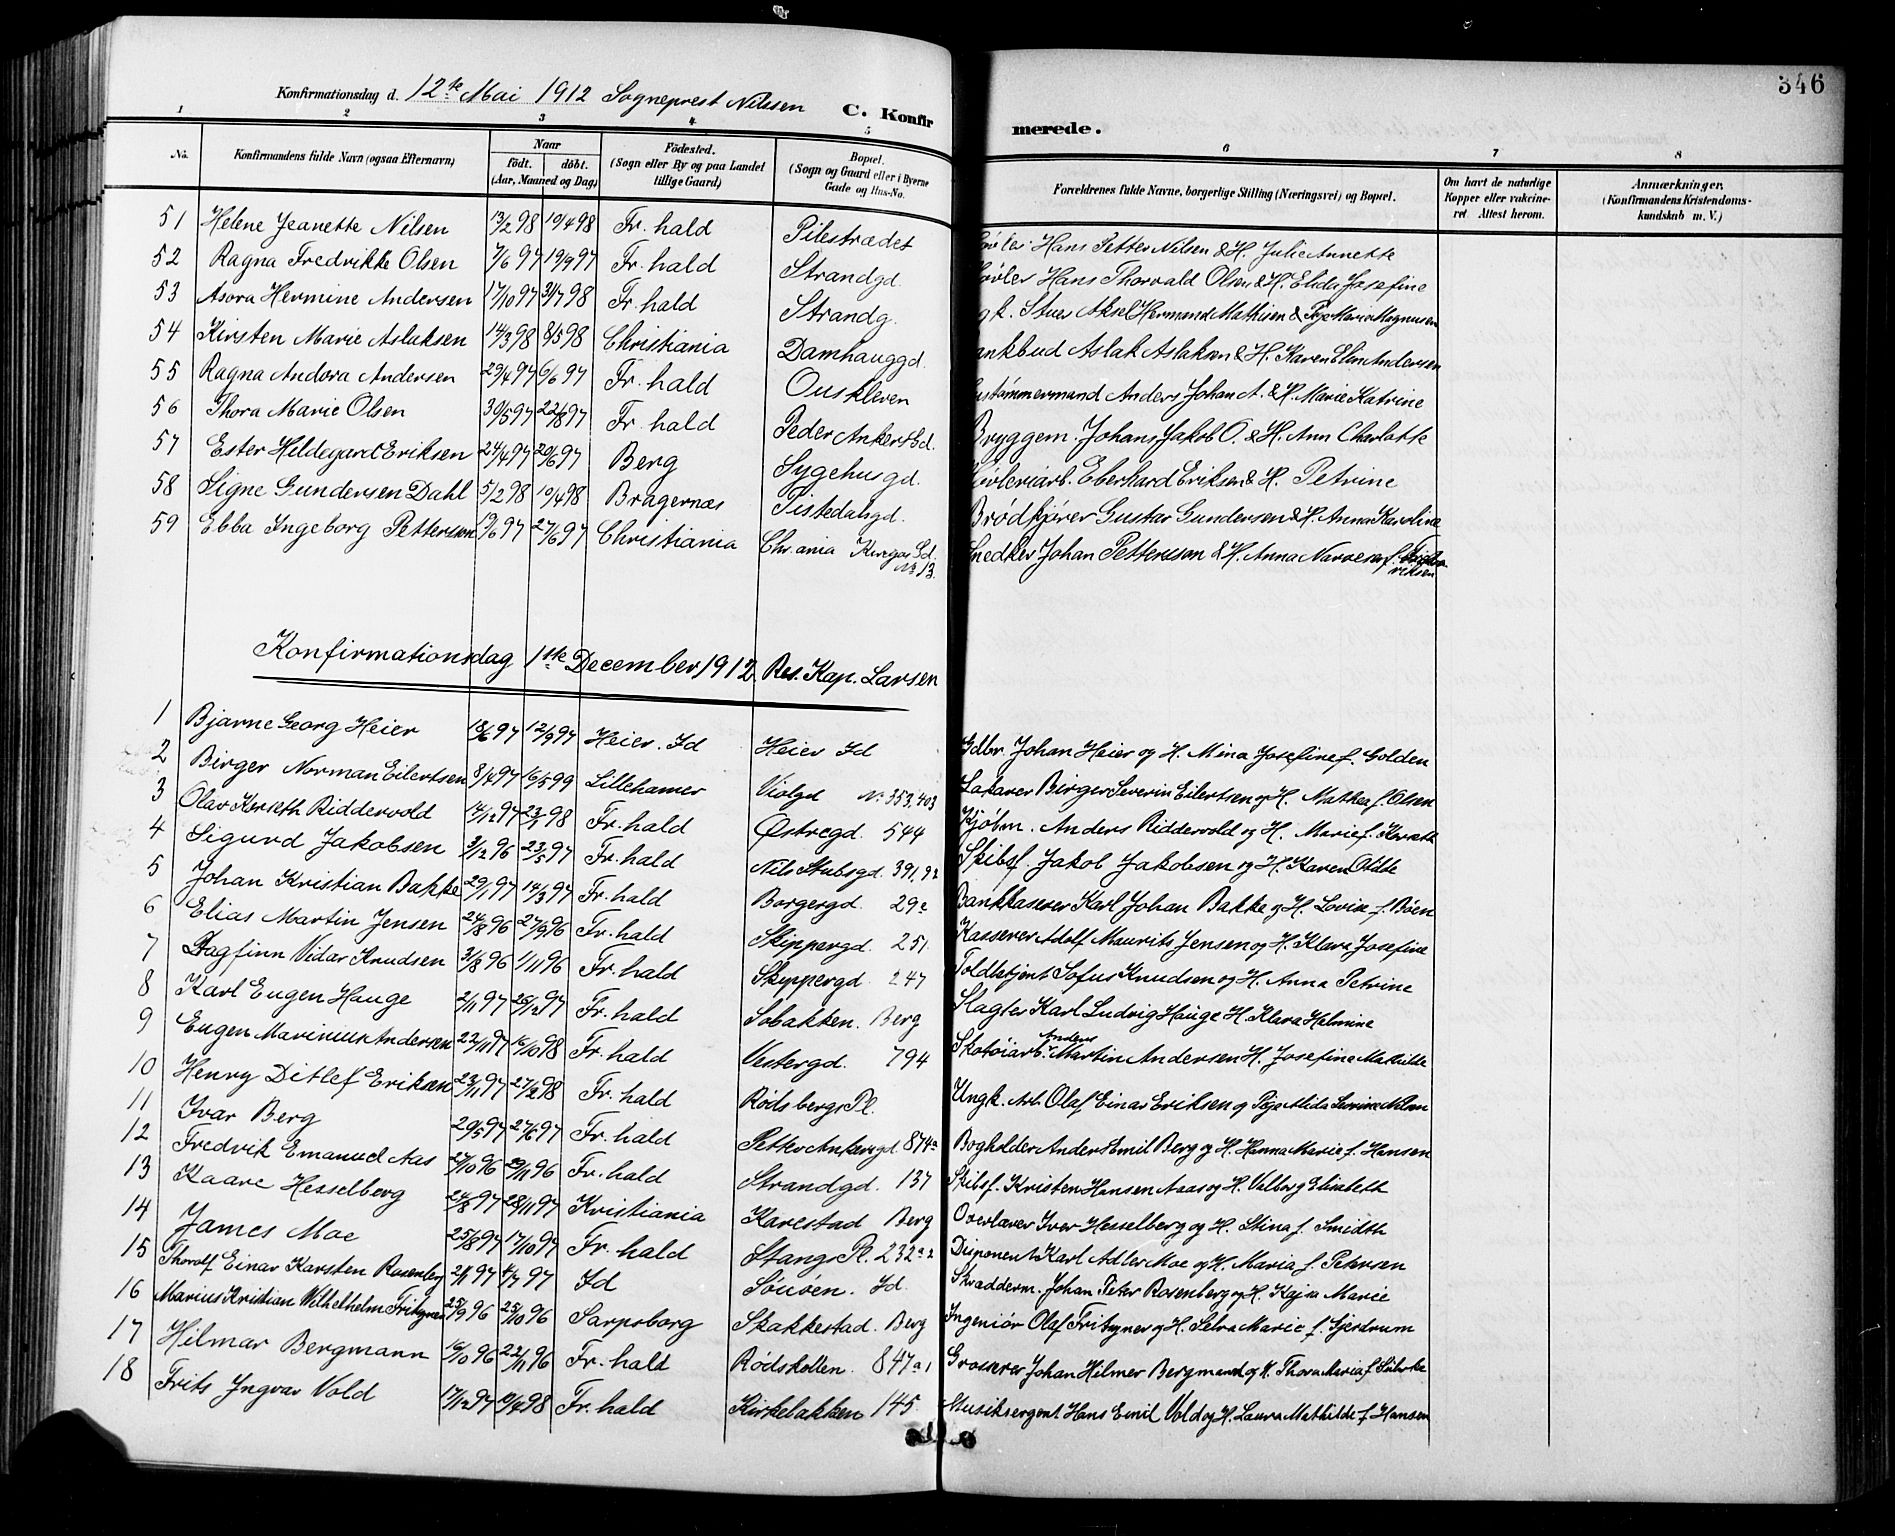 346
Konfirmationsdag d. 12te Mai 1912 Sogneprest Nilssen C. Konfirmerede.
1 2 3 4 5 6 7 8
No. Konfirmandens fulde Navn (ogsaa Efternavn) Naar født. døbt. (Aar, Maaned og Dag) Födested. (Sogn eller By og paa Landet tillige Gaard) Bopæl. (Sogn og Gaard eller i Byerne Gade og Hus-No. Forældrenes fulde Navne, borgerlige Stilling (Næringsvei) og Bopæl. Om havt de naturlige Kopper eller vakcineret. Attest herom. Anmærkninger. (Konfirmandens Kristendomskundskab m. V.)
51 Helene Jeanette Nilsen 13/2 98 10/4 98 Fr. hald Pilestrædet Hans Petter Nilsen & H. Julie Annette
52 Ragna Fredrikke Olsen 7/6 97 19/9 97 Fr. hald Strandgd. Hans Thorvald Olsen & H. Elida Josefine
53 Asora Hermine Andersen 17/10 97 31/7 98 Fr. hald Strandg. Stuer Aksel Hermand Mathisen & Pige Marie Magnusen
54 Kirsten Marie Aslaksen 14/3 98 8/5 98 Christiania Damhauggd. Aslak Aslaksen & H. Karen Elin Andersen
55 Ragna Andora Andersen 29/4 97 6/6 97 Fr. hald Ouskleven Anders Johan A. & H. Marie Katrine
56 Thora Marie Olsen 30/5 97 22/8 97 Fr. hald Peder Ankers Gd. Bryggem. Johans Jakob O. & H. Ann Charlotte
57 Ester Hildegard Eriksen 24/4 97 20/6 97 Berg Sygehusgd. Høvleriarb. Eberhard Eriksen & H. Petrine
58 Signe Gundersen Dahl 5/2 98 10/4 98 Bragernæs Tistedalsgd. Brødkjører Gustav Gundersen & H. Anna Karoline
59 Ebba Ingeborg Petterson 19/6 97 27/6 97 Christiania Chr.ania Gd. No 13. Snedker Johan Petterson & H. Anna Narvesen f.
Konfirmationsdag 1ste December 1912. Res. Kap. Larsen
1 Bjarne Georg Heier 18/6 97 12/9 97 Heier. Id Heier Id Gdbr. Johan Heier og H. Mina Josefine f. Golden
2 Birger Norman Eilertsen 8/4 97 16/5 99 Lillehamer Violgd No 353, 403 Birger Severin Eilertsen og H. Mathea f. Olsen
3 Olav Korseth Riddervold 14/12 97 23/1 98 Fr. hald Østregd. 544 Kjøbm. Anders Riddervold og H. Marie f. Korseth
4 Sigurd Jakobsen 3/12 96 23/5 97 Fr. hald Nils Stubsgd. 391,92 Skibsf. Jakob Jakobsen og H. Karen Otilde
5 Johan Kristian Bakke 29/1 97 14/3 97 Fr. hald Borgergd. 29c Bankkaserer Karl Johan Bakke og H. Lovise f. Bøen
6 Elias Martin Jensen 24/8 96 27/9 96 Fr. hald Skippergd. 251. Kasserer Adolf Maurits Jensen og H. Klara Josefine
7 Dagfinn Vidar Knudsen 31/8 96 1/11 96 Fr. hald Skippergd. 247 Toldbetjent Sofus Knudsen og H. Anna Petrine
8 Karl Eugen Hauge 2/11 97 26/12 97 Fr. hald Sobakken. Berg Slagter Karl Ludvig Hauge H. Klara Helmine
9 Eugen Marinius Andersen 22/11 97 16/10 98 Fr. hald Vestergd. 794 Skotøiarb. Anders Martin Andersen H. Josefine Mathilde
10 Henry Ditlef Eriksen 23/11 97 27/2 98 Fr. hald Rødsbergs Pl. Ungk. Arb. Olaf Einar Eriksen og Pige Alida Lovine Nilsen
11 Ivar Berg 29/5 97 27/6 97 Fr. hald Petter Ankersgd. 874a Bogholder Anders Emil Berg og H. Hanna Marie f. Hansen
12 Fredrik Emanuel Aas 27/10 96 29/11 96 Fr. hald Strandgd. 137 Skibsf. Kristen Hansen Aaas og H. Valborg Elisabeth
13 Kaare Hesselberg 24/8 97 28/11 97 Kristiania Karestad Berg Overlærer Iver Hesselberg og H. Stina f. Smidth
14 James Moe 25/8 97 17/10 97 Fr. hald Stangs Pl. 232a2 Disponent Karl Adler Moe og H. Maria f. Petersen
15 Thorolf Einar Karsten Rosenberg 2/1 97 4/7 97 Id Souøen. Id. Skrædderm. Johan Peter Rosenberg og H. Kajsa Marie
16 Marius Kristian Wilhelhelm Fritzner 25/9 96 25/10 96 Sarpsborg Skakkestad. Berg Ingeniør Olaf Fritzner og H. Selva Marie f. Gjerdrum
17 Hilmar Bergmann 16/10 96 22/11 96 Fr. hald Rødskollen. 847a1 Grosserer Johan Hilmer Bergmann og H. Thora Maria f. Lührke
18 Frits Ingvar Vold 17/12 97 17/4 98 Fr. hald Kirkebakken 145. Musiksergent Hans Emil Vold og H. Laura Mathilde f. Hansen